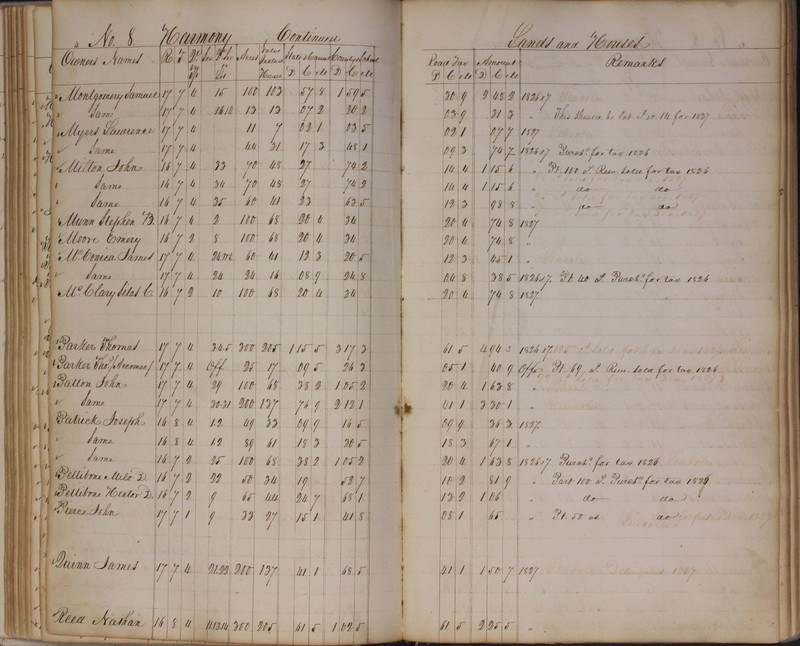 No. 8. Harmony Continued Lands and Houses
Owners Names R T Acres Remarks
Montgomery Samuel 17 7 4 15 100 103 57 8 1 59 5 30 9 2 48 2 1826 & 7
Same 17 7 4 13 13 07 2 20 2 03 9 31 3
Myers Lawrence 17 7 4 11 7 02 1 03 5 02 1 07 7 1827
Same 17 7 4 44 31 17 3 48 1 09 3 74 7 1826 & 7 Purchd. for tax 1826
Milton John 16 7 4 33 70 48 27 74 2 14 4 1 15 6 " Pt. 100 a. Rem. sold for tax 1826
Same 16 7 4 34 70 48 27 74 2 14 4 1 15 6 " do do
Same 16 7 4 35 60 41 23 63 5 12 3 98 8 " do do
Munn Stephen B. 16 7 4 2 100 68 20 4 34 20 4 74 8 1827
Moore Emery 16 7 2 8 100 68 20 4 34 20 4 74 8 "
McConica James 17 7 4 60 41 12 3 20 5 12 3 45 1 "
Same 17 7 4 24 24 16 08 9 24 8 04 8 38 5 1826 & 7. Pt. 40 a. Purchd. for tax 1826
McClary Silas C. 16 7 2 10 100 68 20 4 34 20 4 74 8 1827
Parker Thomas 17 7 4 3 4 5 300 205 1 15 5 3 17 3 61 5 4 94 3 1826 & 7
17 7 4 Off 25 17 09 5 26 3 05 1 40 9 Off Pt. 69 a. Rem. sold for tax 1826
Patton John 17 7 4 29 100 68 38 2 1 05 2 20 4 1 63 8 "
Same 17 7 4 30 31 200 137 76 9 2 12 1 41 1 3 30 1 "
Patrick Joseph 16 8 4 12 49 33 09 9 16 5 09 9 36 3 1827
Same 16 8 4 12 89 61 18 3 30 5 18 3 67 1 "
Same 16 7 2 25 100 68 38 2 1 05 2 20 4 1 63 8 1826 & 7 Purchd. for tax 1826
Pettibone Milo D. 16 7 2 22 50 34 19 52 7 10 2 81 9 " Part 100 a. Purchd. for tax 1826
Pettibone Hector D. 16 7 2 9 65 44 24 7 68 1 13 2 1 06 " do do
Pierce John 17 7 1 9 33 27 15 1 41 8 08 1 65 " Pt. 50 as. do
Quinn James 17 7 4 21.22 200 137 41 1 68 5 41 1 1 50 7 1827
Reed Nathan 16 8 4 300 205 61 5 1 02 5 61 5 2 25 5 "